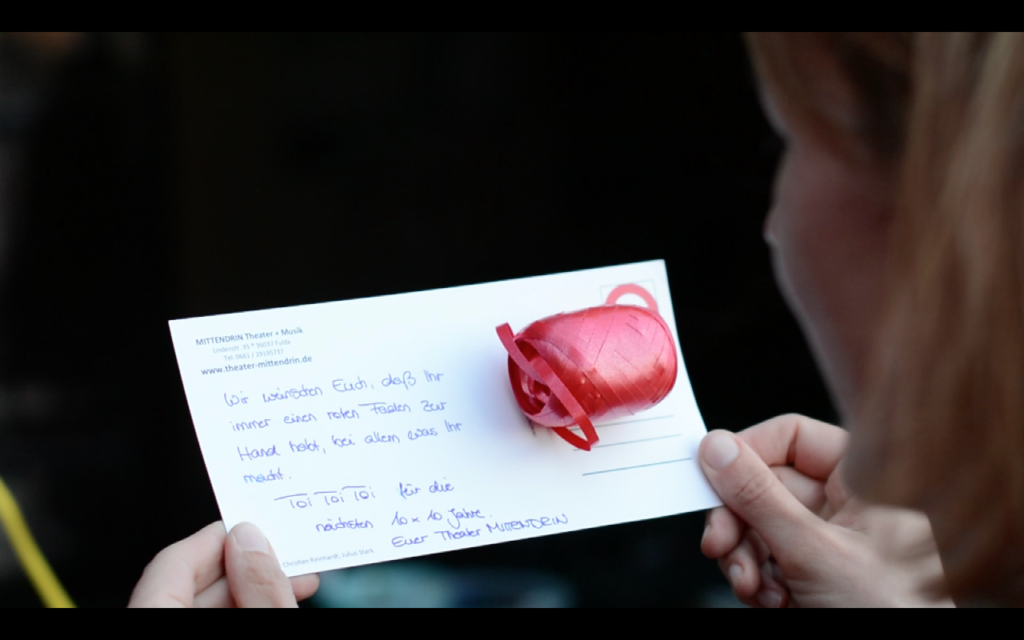 MITTENDRIN Theater + Musik
Lindenstr. 35 * 36037 Fulda
Tel. 0661 /
www.theater-mittendrin.de
Wir wünschen Euch, daß Ihr
immer einen roten Faden zur
Hand habt, bei allem was Ihr
macht.
Toi Toi Toi für die
nächsten 10 x 10 Jahre.
Euer Theater MITTENDRIN
Christian Reinhardt, Julius Stark